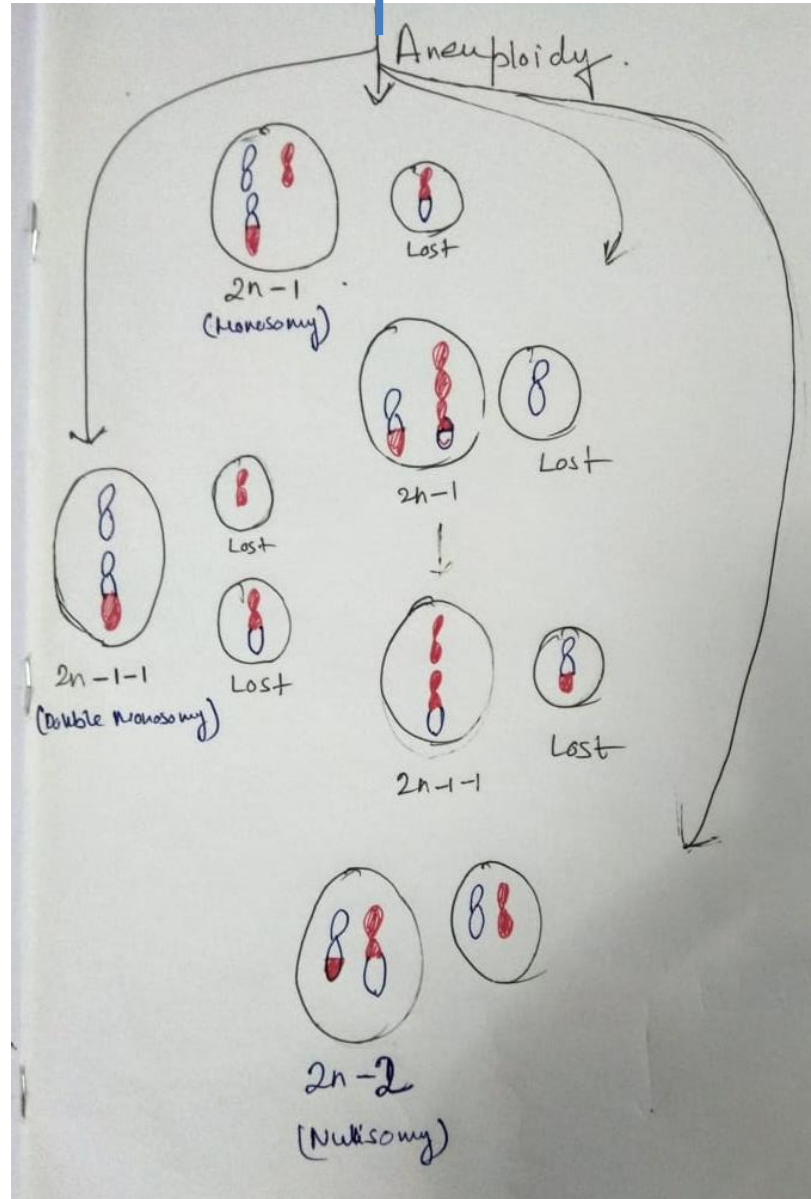 Aneuploidy.
Lost
2n-1
(Monosomy)
Lost
2n-1
Lost
2n-1-1
Lost
(Double Monosomy)
Lost
2n-1-1
2n-2
(Nullisomy)